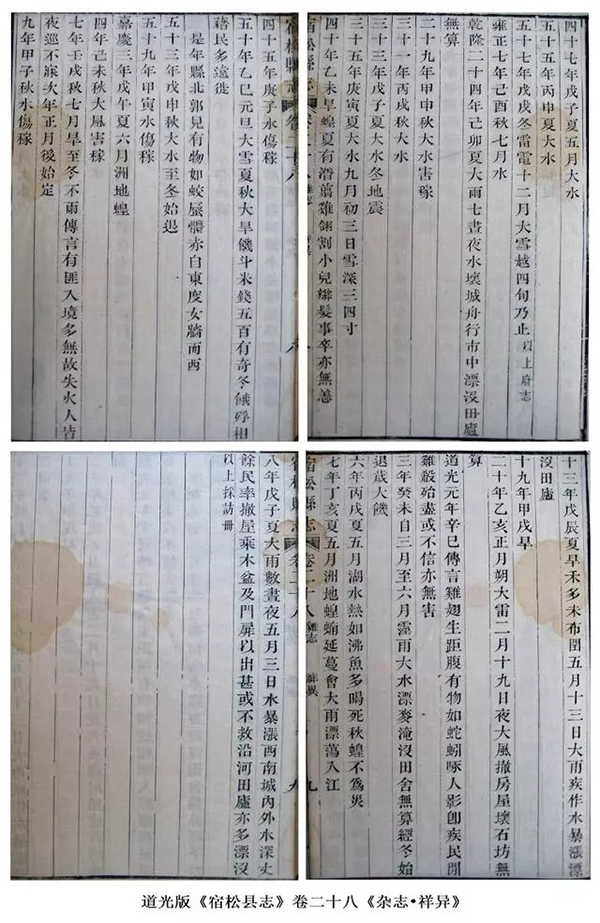 四十七年戊子夏五月大水
五十五年丙申夏大水
五十七年戊戌冬雷電十二月大雪越四旬乃止以上府志
雍正七年己酉秋七月水
乾隆二十四年己卯夏大雨七晝夜水壞城舟行市中漂沒田廬
無算
二十九年甲申秋大水害稼
三十一年丙戌秋大水
三十三年戊子夏大水冬地震
三十五年庚寅夏大水九月初三日雪深三四寸
四十年乙未旱蝗夏有潛翦雞翎割小兒辮髮事卒亦無恙
宿松縣志
宿松縣志 卷二十八 八
四十五年庚子水傷稼
五十年乙巳元旦大雪夏秋大旱饑斗米錢五百有奇冬餓殍相
藉民多遠徙
是年縣北郭見有物如蛟蜃亦白東度女牆而西
五十三年戊申秋大水至冬始退
五十九年甲寅水傷稼
嘉慶三年戊午夏六月洲地蝗
四年己未秋大風害稼
七年壬戌秋七月旱至冬不雨傳言有匪入境多無故失火人皆
夜巡不寐次年正月後始定
九年甲子秋水傷稼
十三年戊辰夏旱禾多未布閏五月十三日大雨疾作水暴漲漂
沒田廬
十九年甲戌旱
二十年乙亥正月朔大雷二月十九日夜大風撤房屋壞石坊無
算
道光元年辛巳傳言雞翅生距腹有物如蛇蚓啄人影卽疾民間
雞殺殆盡或不信亦無害
三年癸未自三月至六月霪雨大水漂麥淹沒田舍無算經冬始
退歲大饑
六年丙戌夏五月湖水熱如沸魚多暍死秋蝗不爲災
七年丁亥夏五月洲地蝗蝻延蔓會大雨漂蕩入江
宿松縣志 卷二十八 雜志 祥異 九
宿松縣志 卷二十八 九
八年戊子夏大雨數晝夜五月三日水暴漲西南城內外水深丈
餘民率撤屋乘木盆及門屏以出甚或不救沿河田廬亦多漂沒
以上採訪冊
道光版《宿松县志》卷二十八《杂志•祥异》